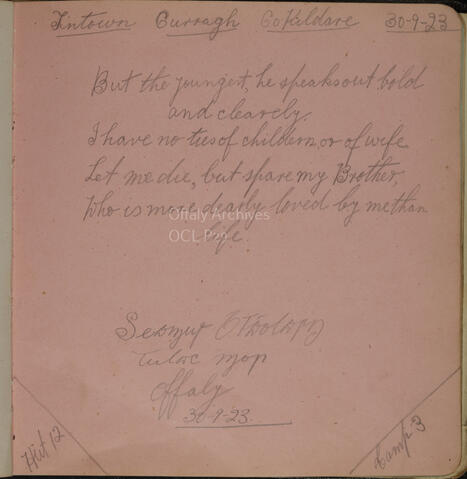 Intown Curragh Co Kildare 30-9-23
But the youngest, he speaks out bold
and clearely.
I have no ties of childern, or of wife
Let me die, but spare my Brother,
Who is more dearly loved by me than
life.
Offaly Archives
OCL P
Seamus
Tulac mor
Offaly
30-9-23.
Hut 12
Camp 3